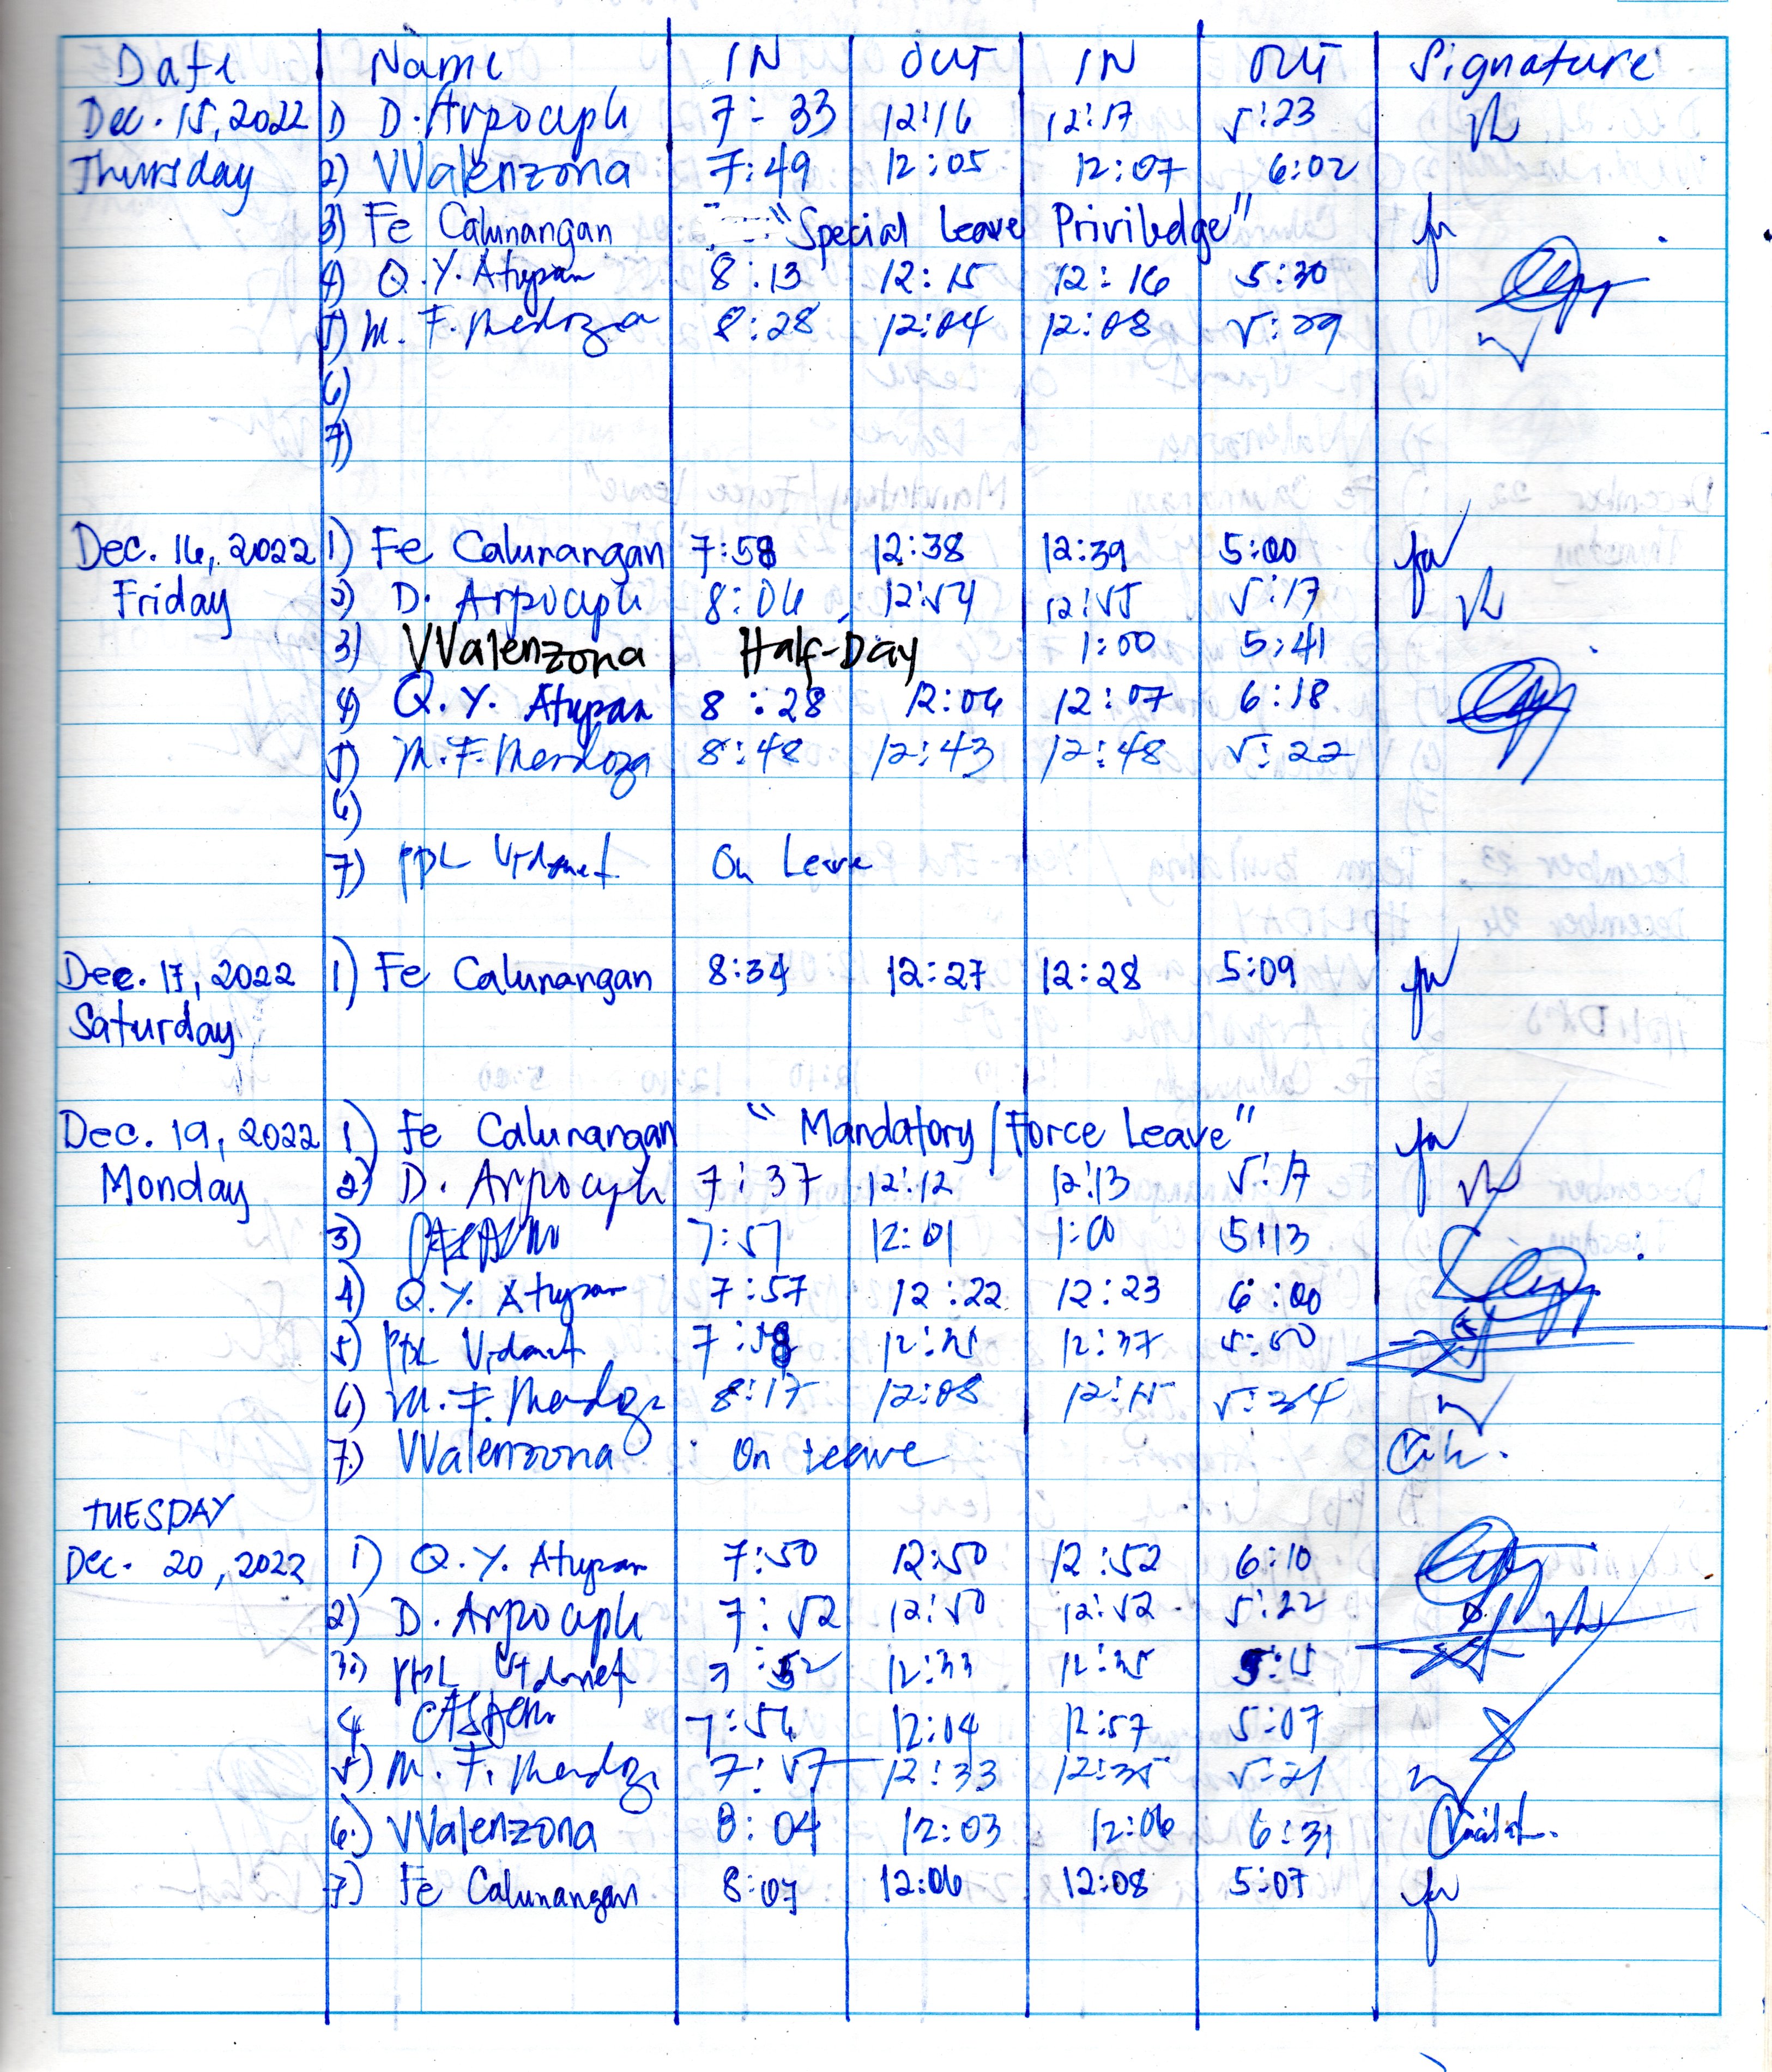 Date Name IN OUT IN OUT Signature
Dec. 15, 2022 1) D. Arpoceple 7:33 12:16 12:17 5:23
Thursday 2) VValenzona 7:49 12:05 12:07 6:02
3) Fe Calunangan "Special Leave Priviledge"
4) Q.Y. Atupan 8:13 12:15 12:16 5:30
5) M. F. Mendoza 8:28 12:04 12:08 5:29
6)
7)
Dec. 16, 2022 1) Fe Calunangan 7:58 12:38 12:39 5:00
Friday 2) D. 8:06 12:54 12:55 5:17
3) VValenzona Half-Day 1:00 5:41
4) Q.Y. Atupan 8:28 12:06 12:07 6:18
5) M.F. Mendoza 8:48 12:43 12:48 5:22
6)
7) On Leave
Dec. 17, 2022 1) Fe Calunangan 8:34 12:27 12:28 5:09
Saturday
Dec. 19, 2022 1) Fe Calunangan "Mandatory/Force Leave"
Monday 2) D. 7:37 12:12 12:13 5:17
3) 7:57 12:01 1:00 5:13
4) Q.Y. Atupan 7:57 12:22 12:23 6:00
5) 7:58 12:37
6) M. F. Mendoza 8:17 12:08 12:15 5:34
7.) VValenzona On Leave
TUESDAY
Dec. 20, 2022 1) Q.Y. Atupan 7:50 12:50 12:52 6:10
2) D. 7:52 12:50 12:52 5:22
3.) 7:52 12:33 12:35 5:15
4 7:56 12:04 12:57 5:07
5) M. F. Mendoza 7:57 12:33 12:35 5:21
6.) VValenzona 8:04 12:03 12:06 6:31
7.) Fe Calunangan 8:07 12:06 12:08 5:07